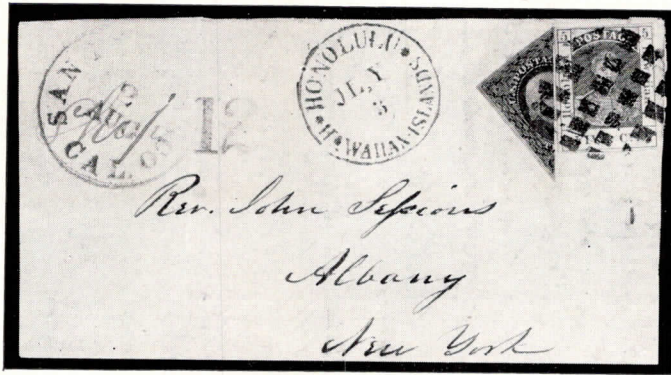 SAN
2
AUG
CAL.
12
HONOLULU
JLY
3
HAWAIIAN-ISLANDS
U.S. POSTAGE
5 POSTAGE 5
Rev. John Sessions
Albany
New York